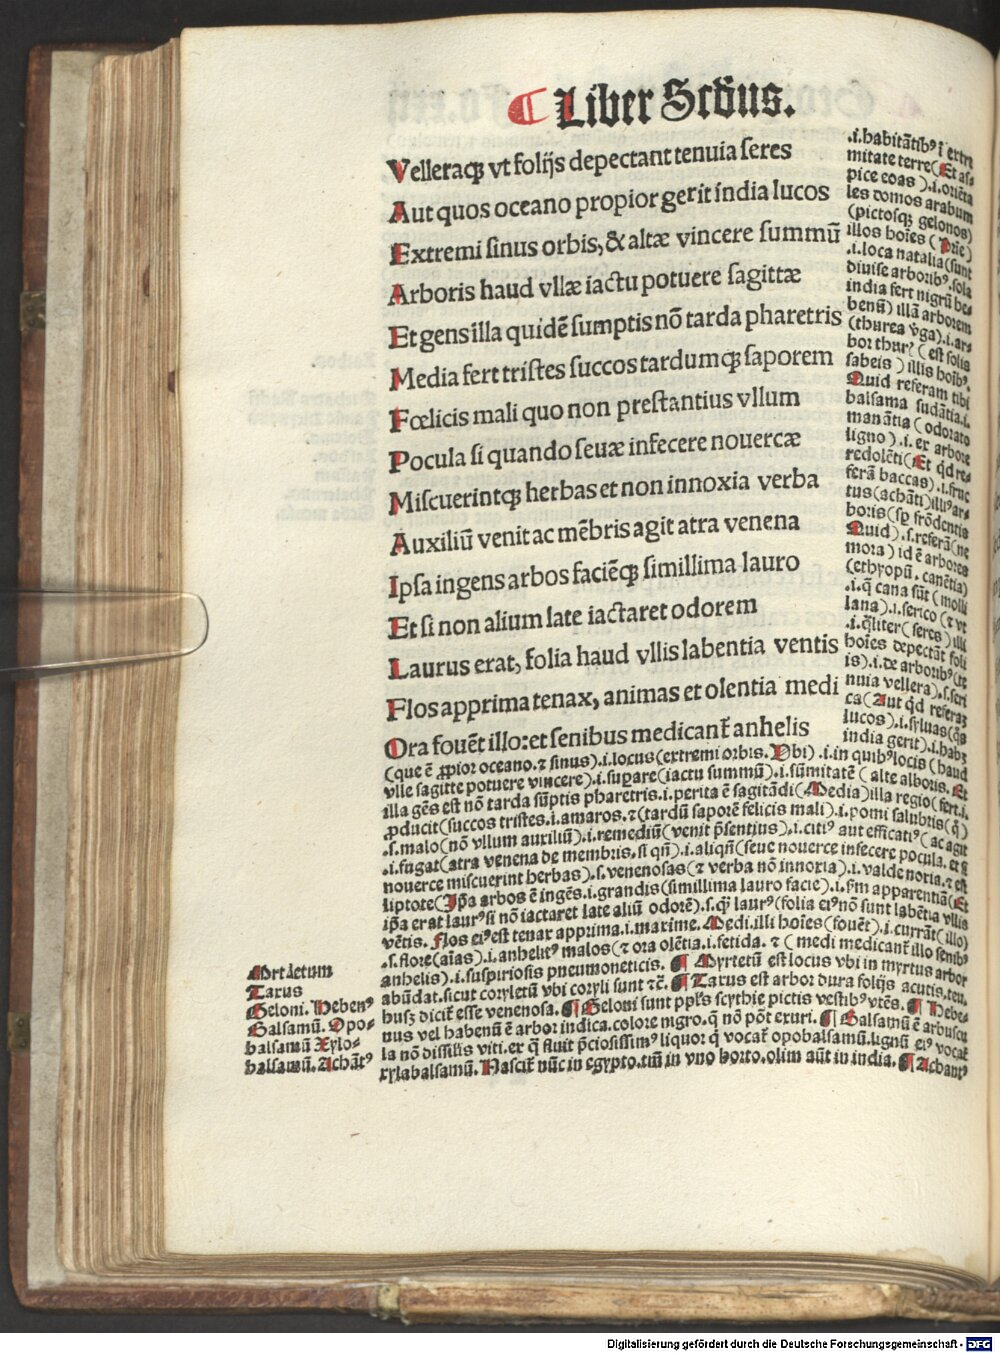 Liber Scđus.
Velleraqꝫ vt folijs depectant tenuia seres
Aut quos oceano propior gerit india lucos
Extremi sinus orbis, & altæ vincere summũ
Arboris haud vllæ iactu potuere sagittæ
Et gens illa quidē sumptis nō tarda pharetris
Media fert tristes succos tardumqꝫ saporem
Fœlicis mali quo non prestantius vllum
Pocula si quando seuæ infecere nouercæ
Miscuerintqꝫ herbas et non innoxia verba
Auxiliũ venit ac mēbris agit atra venena
Ipsa ingens arbos faciēqꝫ simillima lauro
Et si non alium late iactaret odorem
Laurus erat, folia haud vllis labentia ventis
Flos apprima tenax, animas et olentia medi
Ora fouēt illo: et senibus medicant̃ anhelis
.i. habitātibꝰ ĩ extre
mitate terre (Et as
pice eoas) .i. oriēta
les domos arabum
(pictosqꝫ gelonos)
illos hoīes (
.i. loca natalia (sunt
diuise arboribꝰ. sola
india fert nigrũ he
benũ) illā arborem
(thurea v̄ga) .i. ar
bor thurꝭ (est solis
sabeis) illis hoībꝰ.
Quid referam tibi
balsama sudātia .i.
manātia (odorato
ligno) .i. ex arbore
redolēti (Et qđ re
ferā baccas) .i. fruc
tus (achāti) illiꝰ ar
boris (sꝑ frōdentis
Quid) .s. referā (ne
mora) id ē arbores
(ethyopũ. canētia)
.i. q̄ cana sũt (molli
lana) .i. serico (⁊ vt
.i. q̄liter (seres) illi
hoīes depectāt foli
is) .i. de arboribꝰ (te
nuia vellera) .s. seri
ca (Aut qđ referaꝫ
lucos) .i. syluas (q̄s
india gerit) .i. habꝫ
(que ē ꝓpior oceano. ⁊ sinus) .i. locus (extremi orbis. Vbi) .i. in quibꝰ locis (haud
vlle sagitte potuere vincere) .i. suꝑare (iactu summũ) .i. sũmitatē (alte alboris. Et
illa gēs est nō tarda sũptis pharetris .i. perita ē sagitādi (Media) illa regio (fert .i.
ꝓducit (succos tristes .i. amaros. ⁊ (tardũ saporē felicis mali) .i. pomi salubris (q̄)
.s. malo (nō vllum auxiliũ) .i. remediũ (venit p̄sentius) .i. citiꝰ aut efficatiꝰ (ac agit
.i. fugat (atra venena de membris. si qñ) .i. aliqñ (seue nouerce infecere pocula. et si
nouerce miscuerint herbas) .s. venenosas (⁊ verba nō innoxia) .i. valde noxia. ⁊ est
liptote (Ip̄a arbos ē ingēs .i. grandis (simillima lauro facie) .i. ẜm apparentiā (Et
ip̄a erat laurꝰ si nō iactaret late aliũ odorē) .s. q̄ laurꝰ (folia eiꝰ nō sunt labētia vllis
vētis. Flos eiꝰ est tenax apprima .i. maxime. Medi. illi hoīes (fouēt) .i. currāt (illo)
.s. flore (aīas) .i. anhelitꝰ malos (⁊ ora olētia .i. fetida. ⁊ (medi medicant̃ illo senibꝰ
anhelis) .i. suspiriosis pneumoneticis. ¶ Myrtetũ est locus vbi in myrtus arbor
abũdat. sicut coryletũ vbi coryli sunt ⁊č. ¶ Taxus est arbor dura folijs acutis, teu,
busꝫ dicit̃ esse venenosa. ¶ Geloni sunt pp̄ls scythie pictis vestibꝰ vtēs. ¶ Hebe-
nus vel habenũ ē arbor indica. colore nigro. q̄ nō pōt exuri. ¶ Balsamũ ē arbuscu
la nō dissilis viti. ex q̄ fluit p̄ciosissimꝰ liquor q̄ vocat̃ opobalsamũ. lignũ eiꝰ vocat̃
xylabalsamũ. Nascit̃ nũc in egypto. tm̃ in vno horto. olim aũt in india. ¶ Achantꝰ
Mirtetum
Taxus
Geloni. Hebenꝰ
Balsamũ. Opo-
balsamũ Xylo-
balsamũ. Achātꝰ
Digitalisierung gefördert durch die Deutsche Forschungsgemeinschaft - DFG